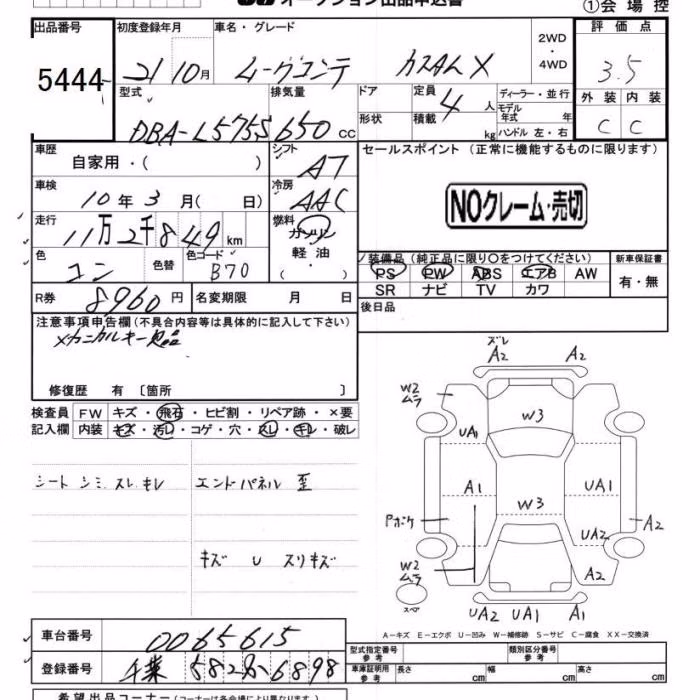 オークション出品申込書
①会場控
出品番号 初度登録年月 車名・グレード 2WD・4WD 評価点
5444 21 10月 ムーヴコンテ カスタムX 3.5
型式 排気量 ドア 定員 4人 ディーラー・並行 外装 内装
DBA-L575S 650cc 形状 積載 kg モデル年式 年 C C
ハンドル 左・右
車歴 自家用・( ) シフト AT セールスポイント (正常に機能するものに限ります)
車検 10年3月( 日) 冷房 AAC NOクレーム・売切
走行 11万2千849km 燃料 ガソリン・軽油・( )
色 コン 色替 色コード B70 装備品 (純正品に限り○をつけてください) 新車保証書
PS PW ABS エアB AW 有・無
SR ナビ TV カワ
R券 8960円 名変期限 月 日 後日品
注意事項申告欄(不具合内容等は具体的に記入して下さい)
メカニカルキー欠品
修復歴 有 〔箇所 〕
検査員 FW キズ・飛石・ヒビ割・リペア跡・×要
記入欄 内装 キズ・汚レ・コゲ・穴・スレ・キレ・破レ
シート シミ スレ キレ エンドパネル 歪
キズ U スリキズ
ズレ
A2 A2
W2 ムラ
W3
UA1
A1 UA1
W3
Pボケ A2
UA2
W2 ムラ A2
スペア
UA2 UA1 A1
A-キズ E-エクボ U-凹み W-補修跡 S-サビ C-腐食 XX-交換済
車台番号 0065615 型式指定番号 参考 類別区分番号 参考
登録番号 千葉 582 6898 車庫証明用 参考 長さ cm 幅 cm 高さ cm
希望出品コーナー(コーナーは各会場により異なります)